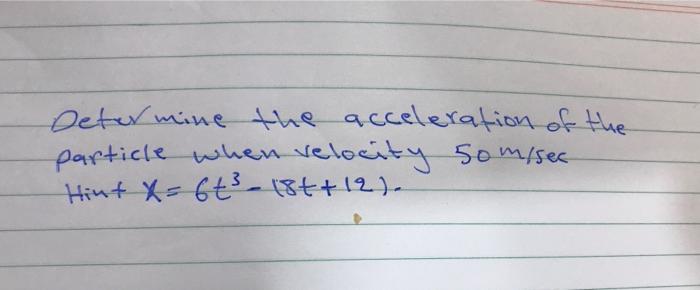 Determine the acceleration of the
particle when velocity 50 m/sec
Hint X = 6t³ - (8t + 12).